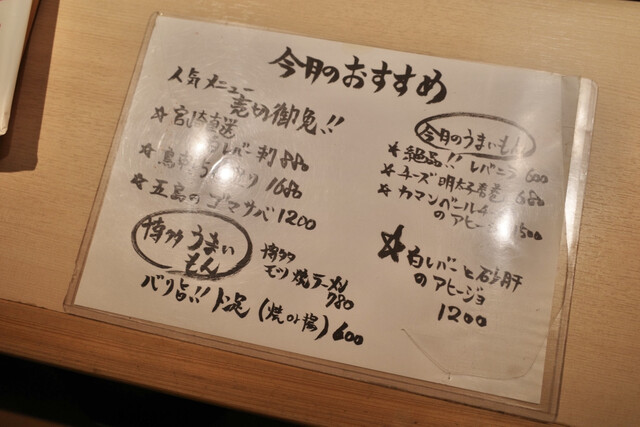 今月のおすすめ
人気メニュー
売切御免!!
☆宮崎直送
白レバ刺 880
1680
☆五島のゴマサバ 1200
博多うまい
もん
博多
モツ焼ラーメン
780
バリ旨!! トン足 (焼or揚) 600
今月のうまいもん
☆絶品!! レバニラ 600
☆チーズ明太子春巻 680
☆カマンベールチーズ
のアヒージョ 1500
☆白レバーと砂肝
のアヒージョ
1200